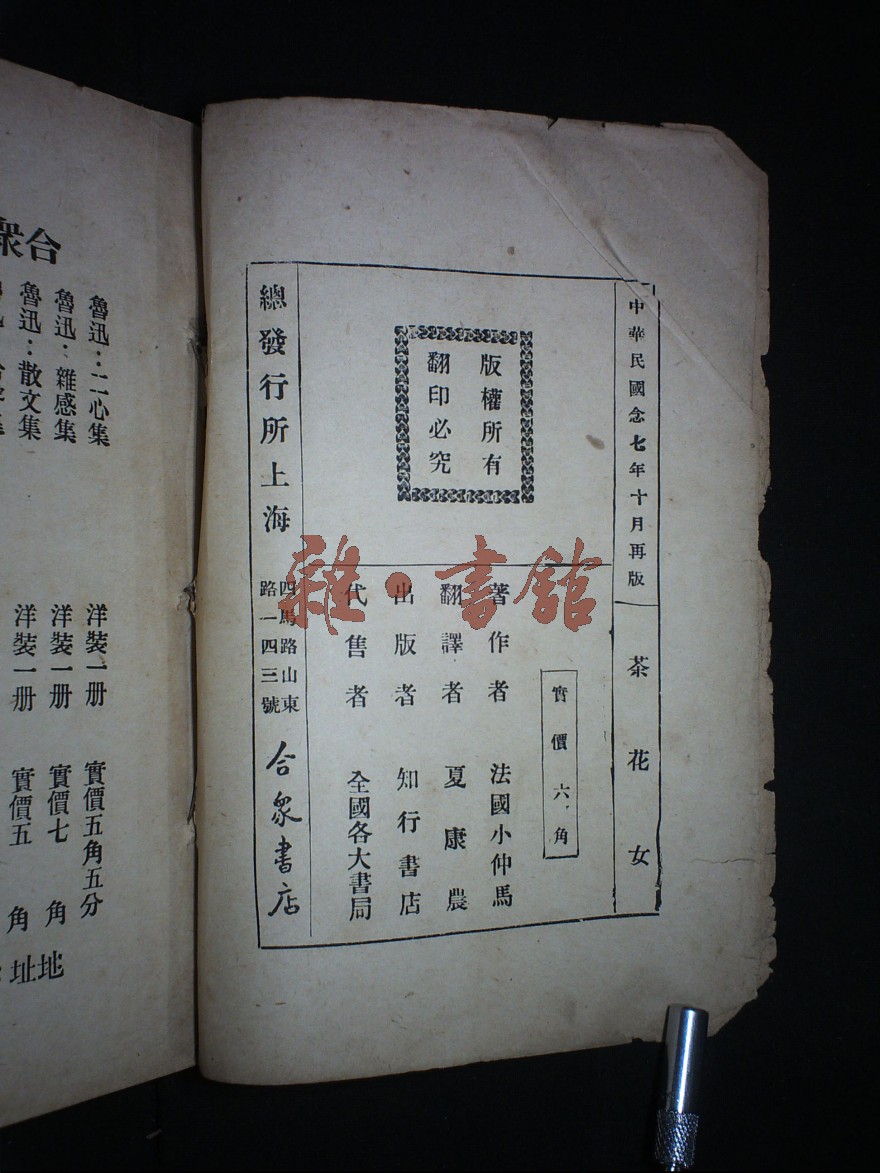 中華民國念七年十月再版
茶花女
版權所有
翻印必究
實價六角
著作者 法國小仲馬
翻譯者 夏康農
出版者 知行書店
代售者 全國各大書局
總發行所上海
四馬路山東
路一四三號
合衆書店
合衆
魯迅：二心集 洋裝一册 實價五角五分
魯迅：雜感集 洋裝一册 實價七角
魯迅：散文集 洋裝一册 實價五角
地址
雜·書館